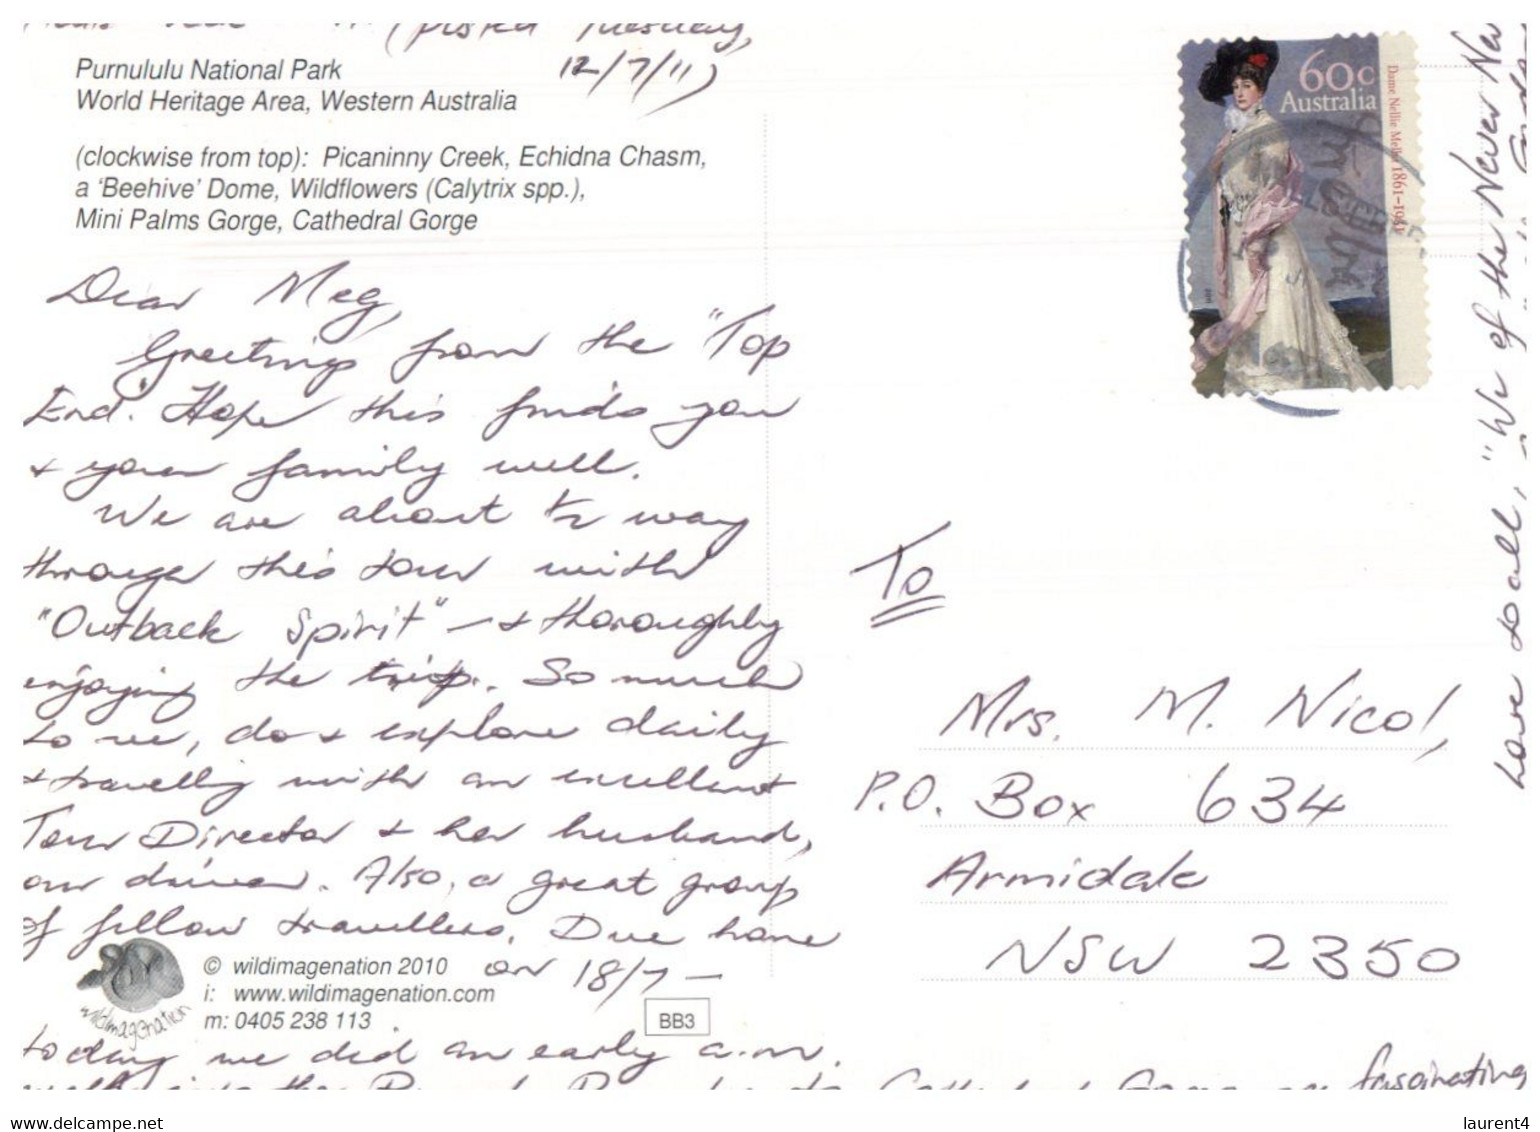 (posted Tuesday,
12/7/11)
Purnululu National Park
World Heritage Area, Western Australia
(clockwise from top): Picaninny Creek, Echidna Chasm,
a 'Beehive' Dome, Wildflowers (Calytrix spp.),
Mini Palms Gorge, Cathedral Gorge
Dear Meg,
Greetings from the "Top
End". Hope this finds you
+ your family well.
We are about ½ way
through this tour with
"Outback Spirit" - + thoroughly
enjoying the trip. So much
to see, do + explore daily
+ travelling with an excellent
Tour Director + her husband,
our driver. Also, a great group
of fellow travellers. Due home
on 18/7 -
© wildimagenation 2010
i: www.wildimagenation.com
m: 0405 238 113
wildimagenation
BB3
today we did an early a.m.
walk into the
Cathedral Gorge
fascinating
60c
Australia
Dame Nellie Melba 1861-1931
To
Mrs. M. Nicol,
P.O. Box 634
Armidale
NSW 2350
Love to all, "We of the Never Nev
laurent4